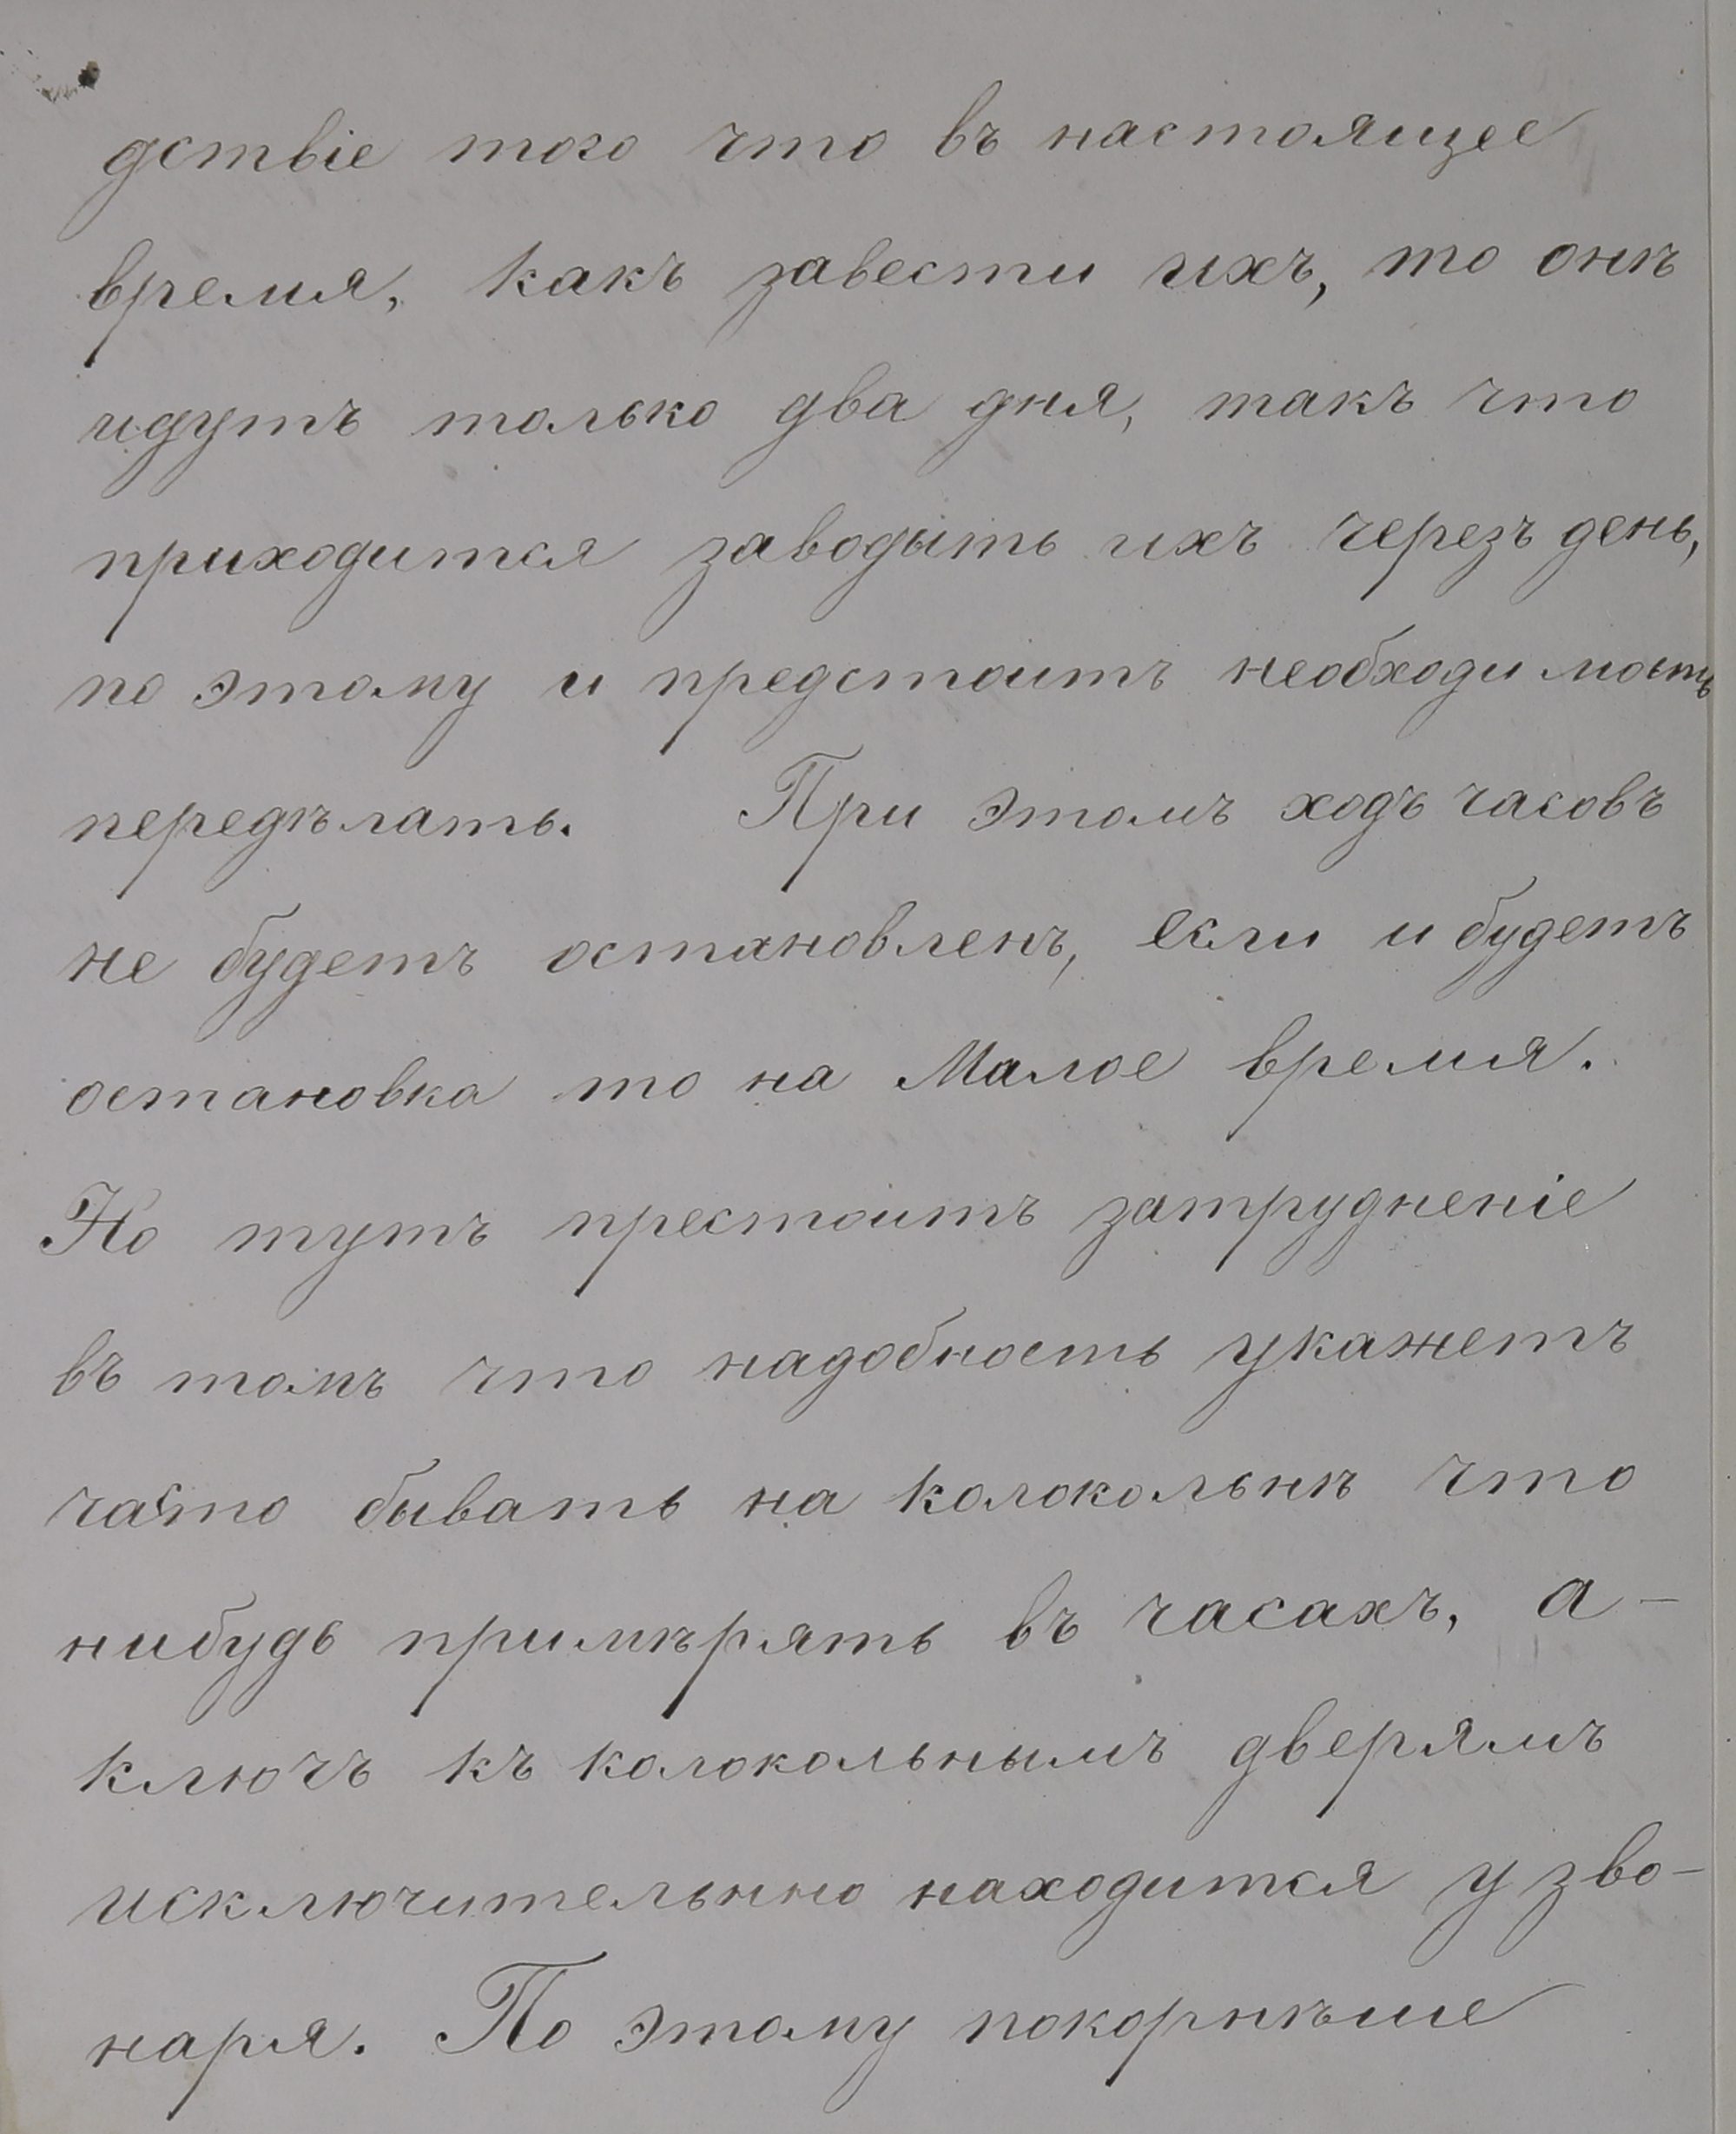 дствіе того что въ настоящее
время, какъ завести ихъ, то онѣ
идутъ только два дня, такъ что
приходится заводить ихъ черезъ день,
по этому и предстоитъ необходимость
передѣлать. При этомъ ходъ часовъ
не будетъ остановленъ, если и будетъ
остановка то на Малое время.
Но тутъ престоитъ затрудненіе
въ томъ что надобность укажетъ
часто бывать на колокольнѣ что
нибудь примѣрять въ часахъ, а-
ключъ къ колокольнымъ дверямъ
исключительнно находится у зво-
наря. По этому покорнѣше